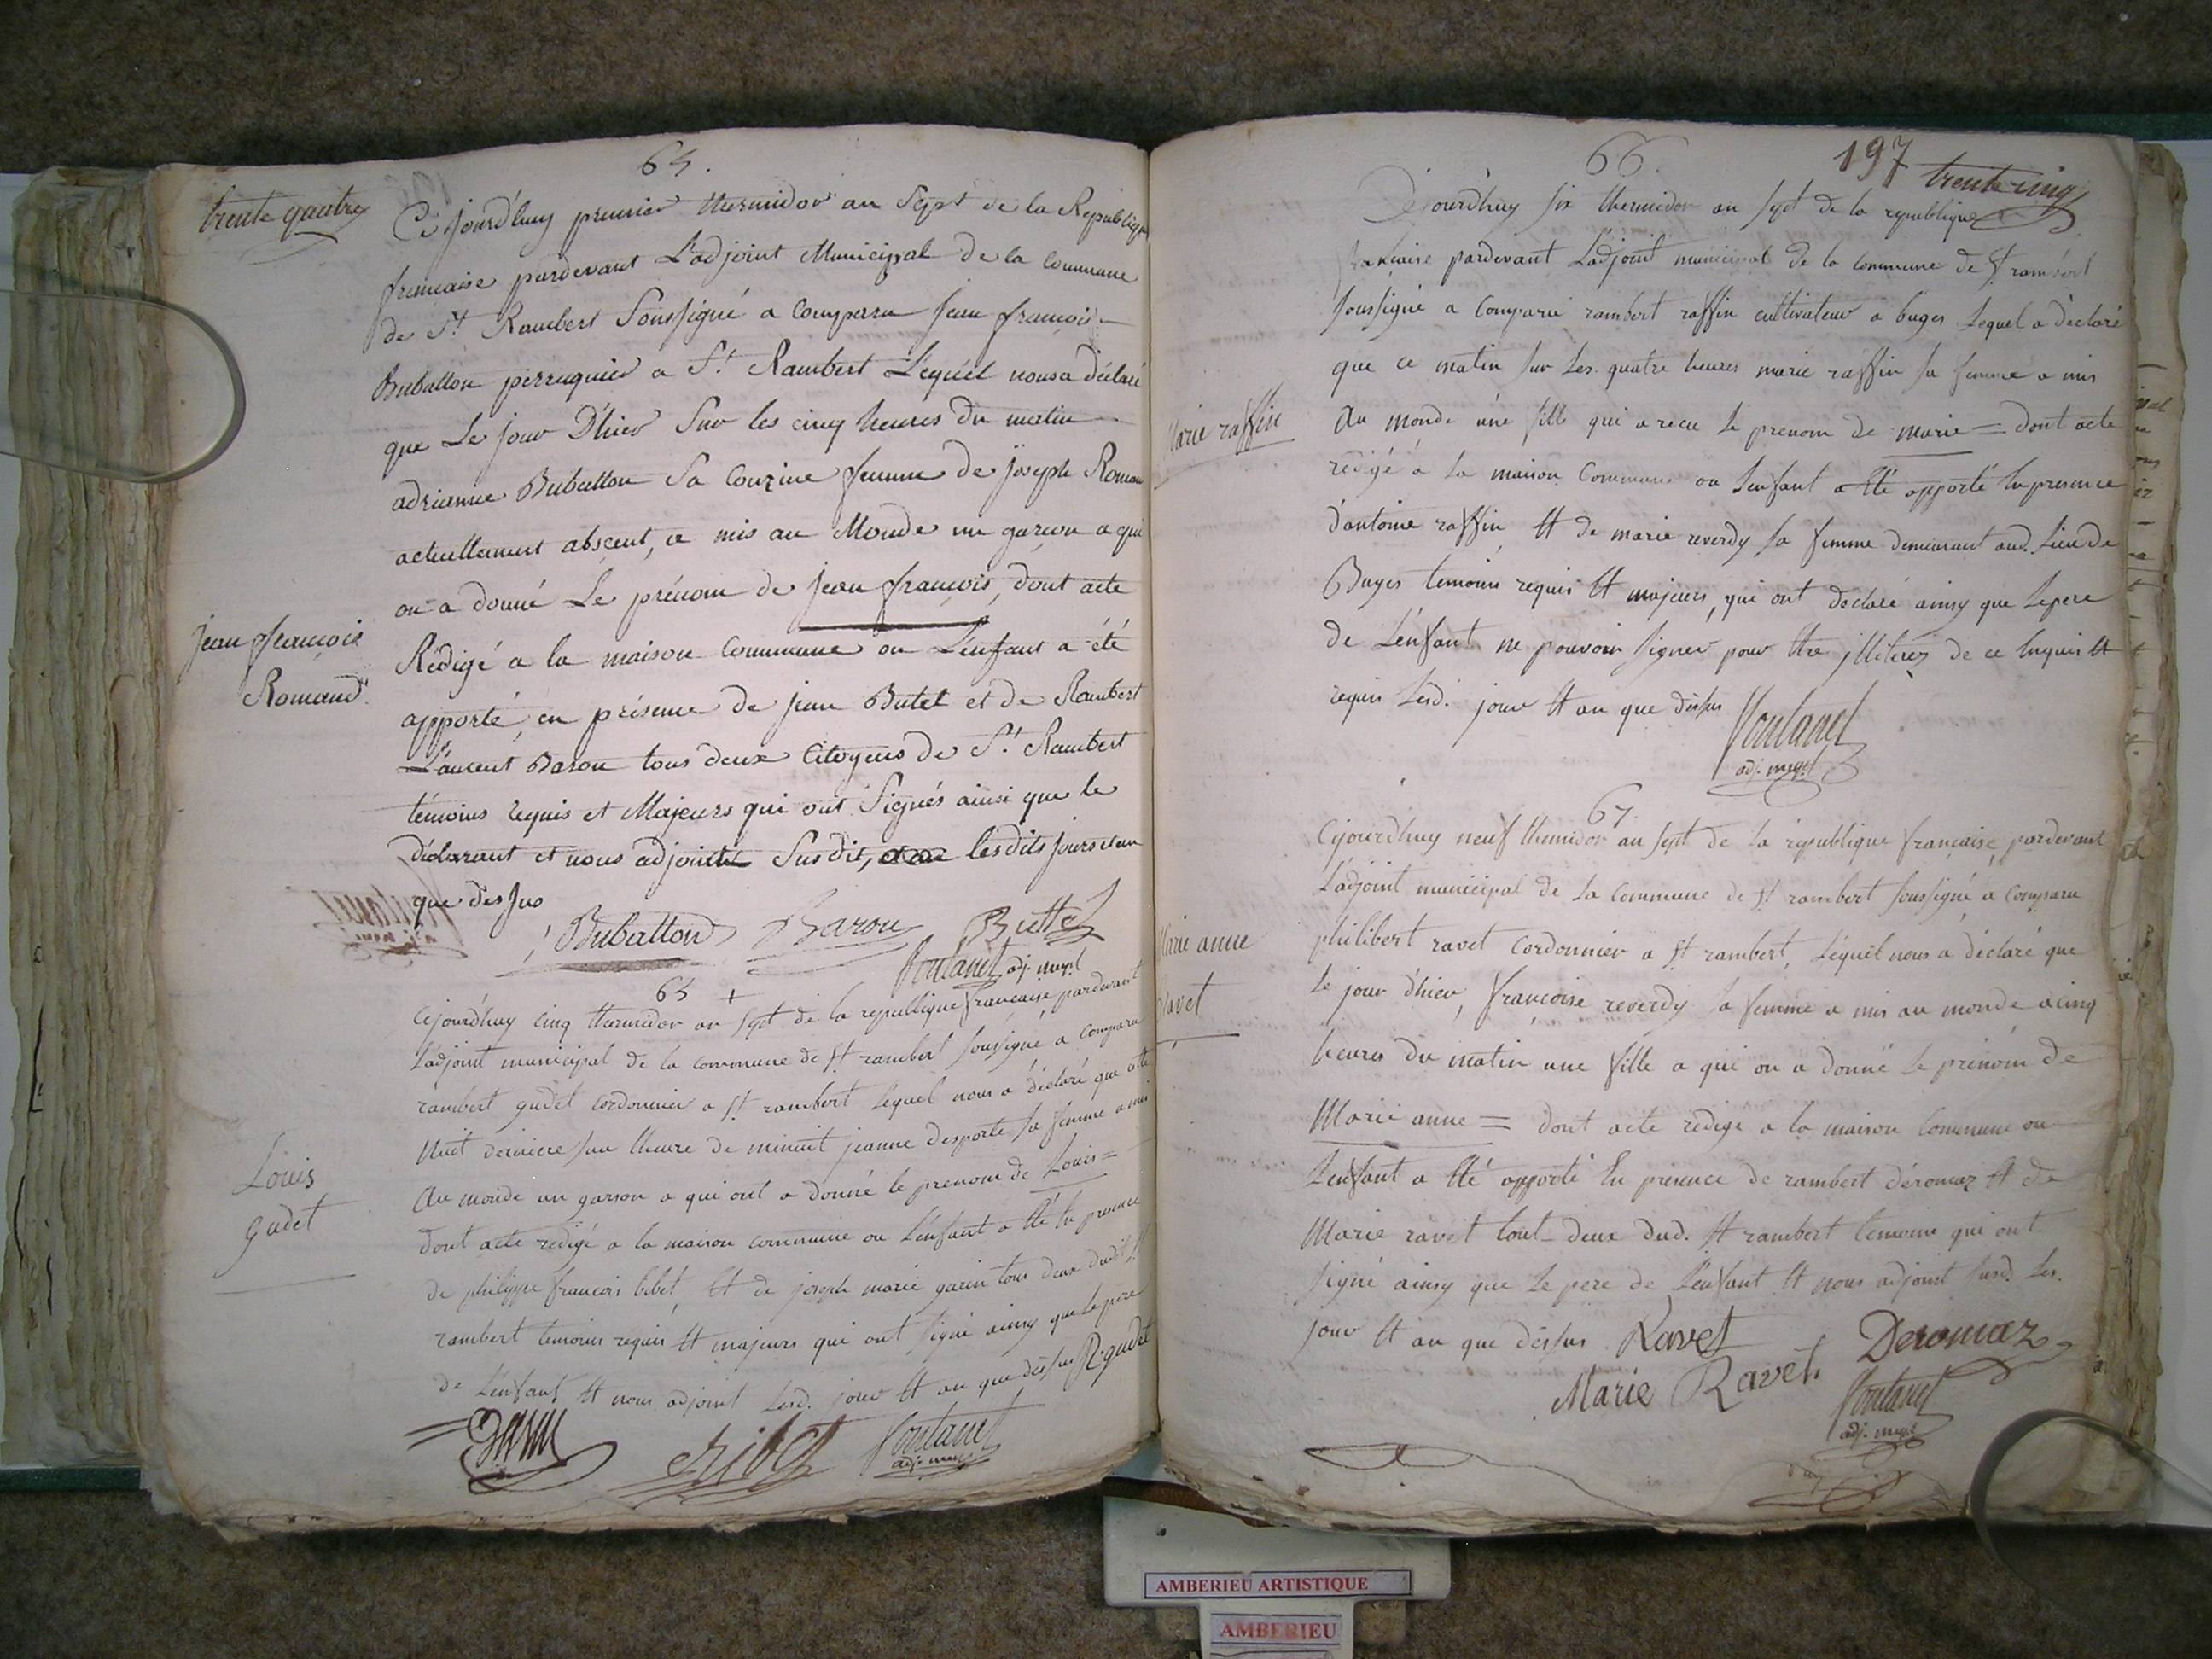 64.
trente quatre
Ce jourd'huy premier thermidor an Sept de la Republique
francaise pardevant L'adjoint Municipal de la Commune
de St. Rambert Soussigné a comparu jean françois
Bubatton perruquier a St. Rambert Léquél nous a déclaré
que Le jour D'hier Sur les cinq heures du matin
adrianne Bubatton Sa Couzine femme de joseph Roman
actuellement absçent, a mis au Monde un garçon a qui
on a donné Le prénom de jean françois, dont acte
jean françois
Romand.
Rédigé a la maison Commune ou L'enfant a été
apporté, en présence de jean Butet et de Rambert
Laurent Baron tous deux Citoyens de St. Rambert
témoins requis et Majeurs qui ont Signés ainsi que le
déclarant et nous adjoint Susdit, les dits jours et an
que dessus
Bubatton Baron Buttet
Montanet adj. mupl
65 +
Cejourd'huy cinq thermidor an sept de la republique francaise pardevant
L'adjoint municipal de la commune de St rambert soussigné a comparu
rambert gudet cordonnier a St. rambert lequel nous a déclaré que cette
Nuit derniere sur lheure de minuit jeanne desporte sa femme a mis
Au monde un garson a qui ont a donné le prenom de Louis =
Louis
gudet
dont acte redigé a la maison commune ou L'enfant a été En presence
de philippe francois bibet, Et de joseph marie garin tous deux dudit St
rambert temoins requis Et majeurs qui ont signé ainsy que le pere
de L'enfant Et nous adjoint Lesd. jour Et an que dessus R. gudet
adj. mup
66.
197
trente cinq
Cejourdhuy six thermidor an sept de la republique
francaise pardevant L'adjoint municipal de la commune de St. rambert
soussigné a comparu rambert raffin cultivateur a buges Lequel a déclaré
que ce matin sur Les quatre heures marie raffin sa femme a mis
Au monde une fille qui a recu le prenom de marie = dont acte
Marie raffin
redigé a la maison Commune ou L'enfant a Eté apporté En presence
d'antoine raffin Et de marie reverdy sa femme demeurant aud. Lieu de
Buges temoins requis Et majeurs, qui ont declaré ainsy que le pere
de L'enfant ne pouvoir signer pour Etre jlliterez de ce Enquis Et
requis Lesd. jour Et an que dessus
Montanet
adj. mupl
67.
Cejourdhuy neuf thermidor an sept de la république française, pardevant
L'adjoint municipal de la commune de St rambert soussigné a comparu
philibert ravet cordonnier a St rambert, Léquél nous a déclaré que
Marie anne
Ravet
le jour d'hier, françoise reverdy sa femme a mis au monde a cinq
heures du matin une fille a qui on a donné le prénom de
Marie anne = dont acte redigé a la maison commune ou
L'enfant a Eté apporté En présence de rambert déromaz Et de
Marie ravet tout deux dud. St rambert temoins qui ont
signé ainsy que le pere de L'enfant Et nous adjoint susd. Les.
jour Et an que dessus Ravet Deromaz
Marie Ravet
Montanet
adj. mupl
AMBERIEU ARTISTIQUE
AMBERIEU